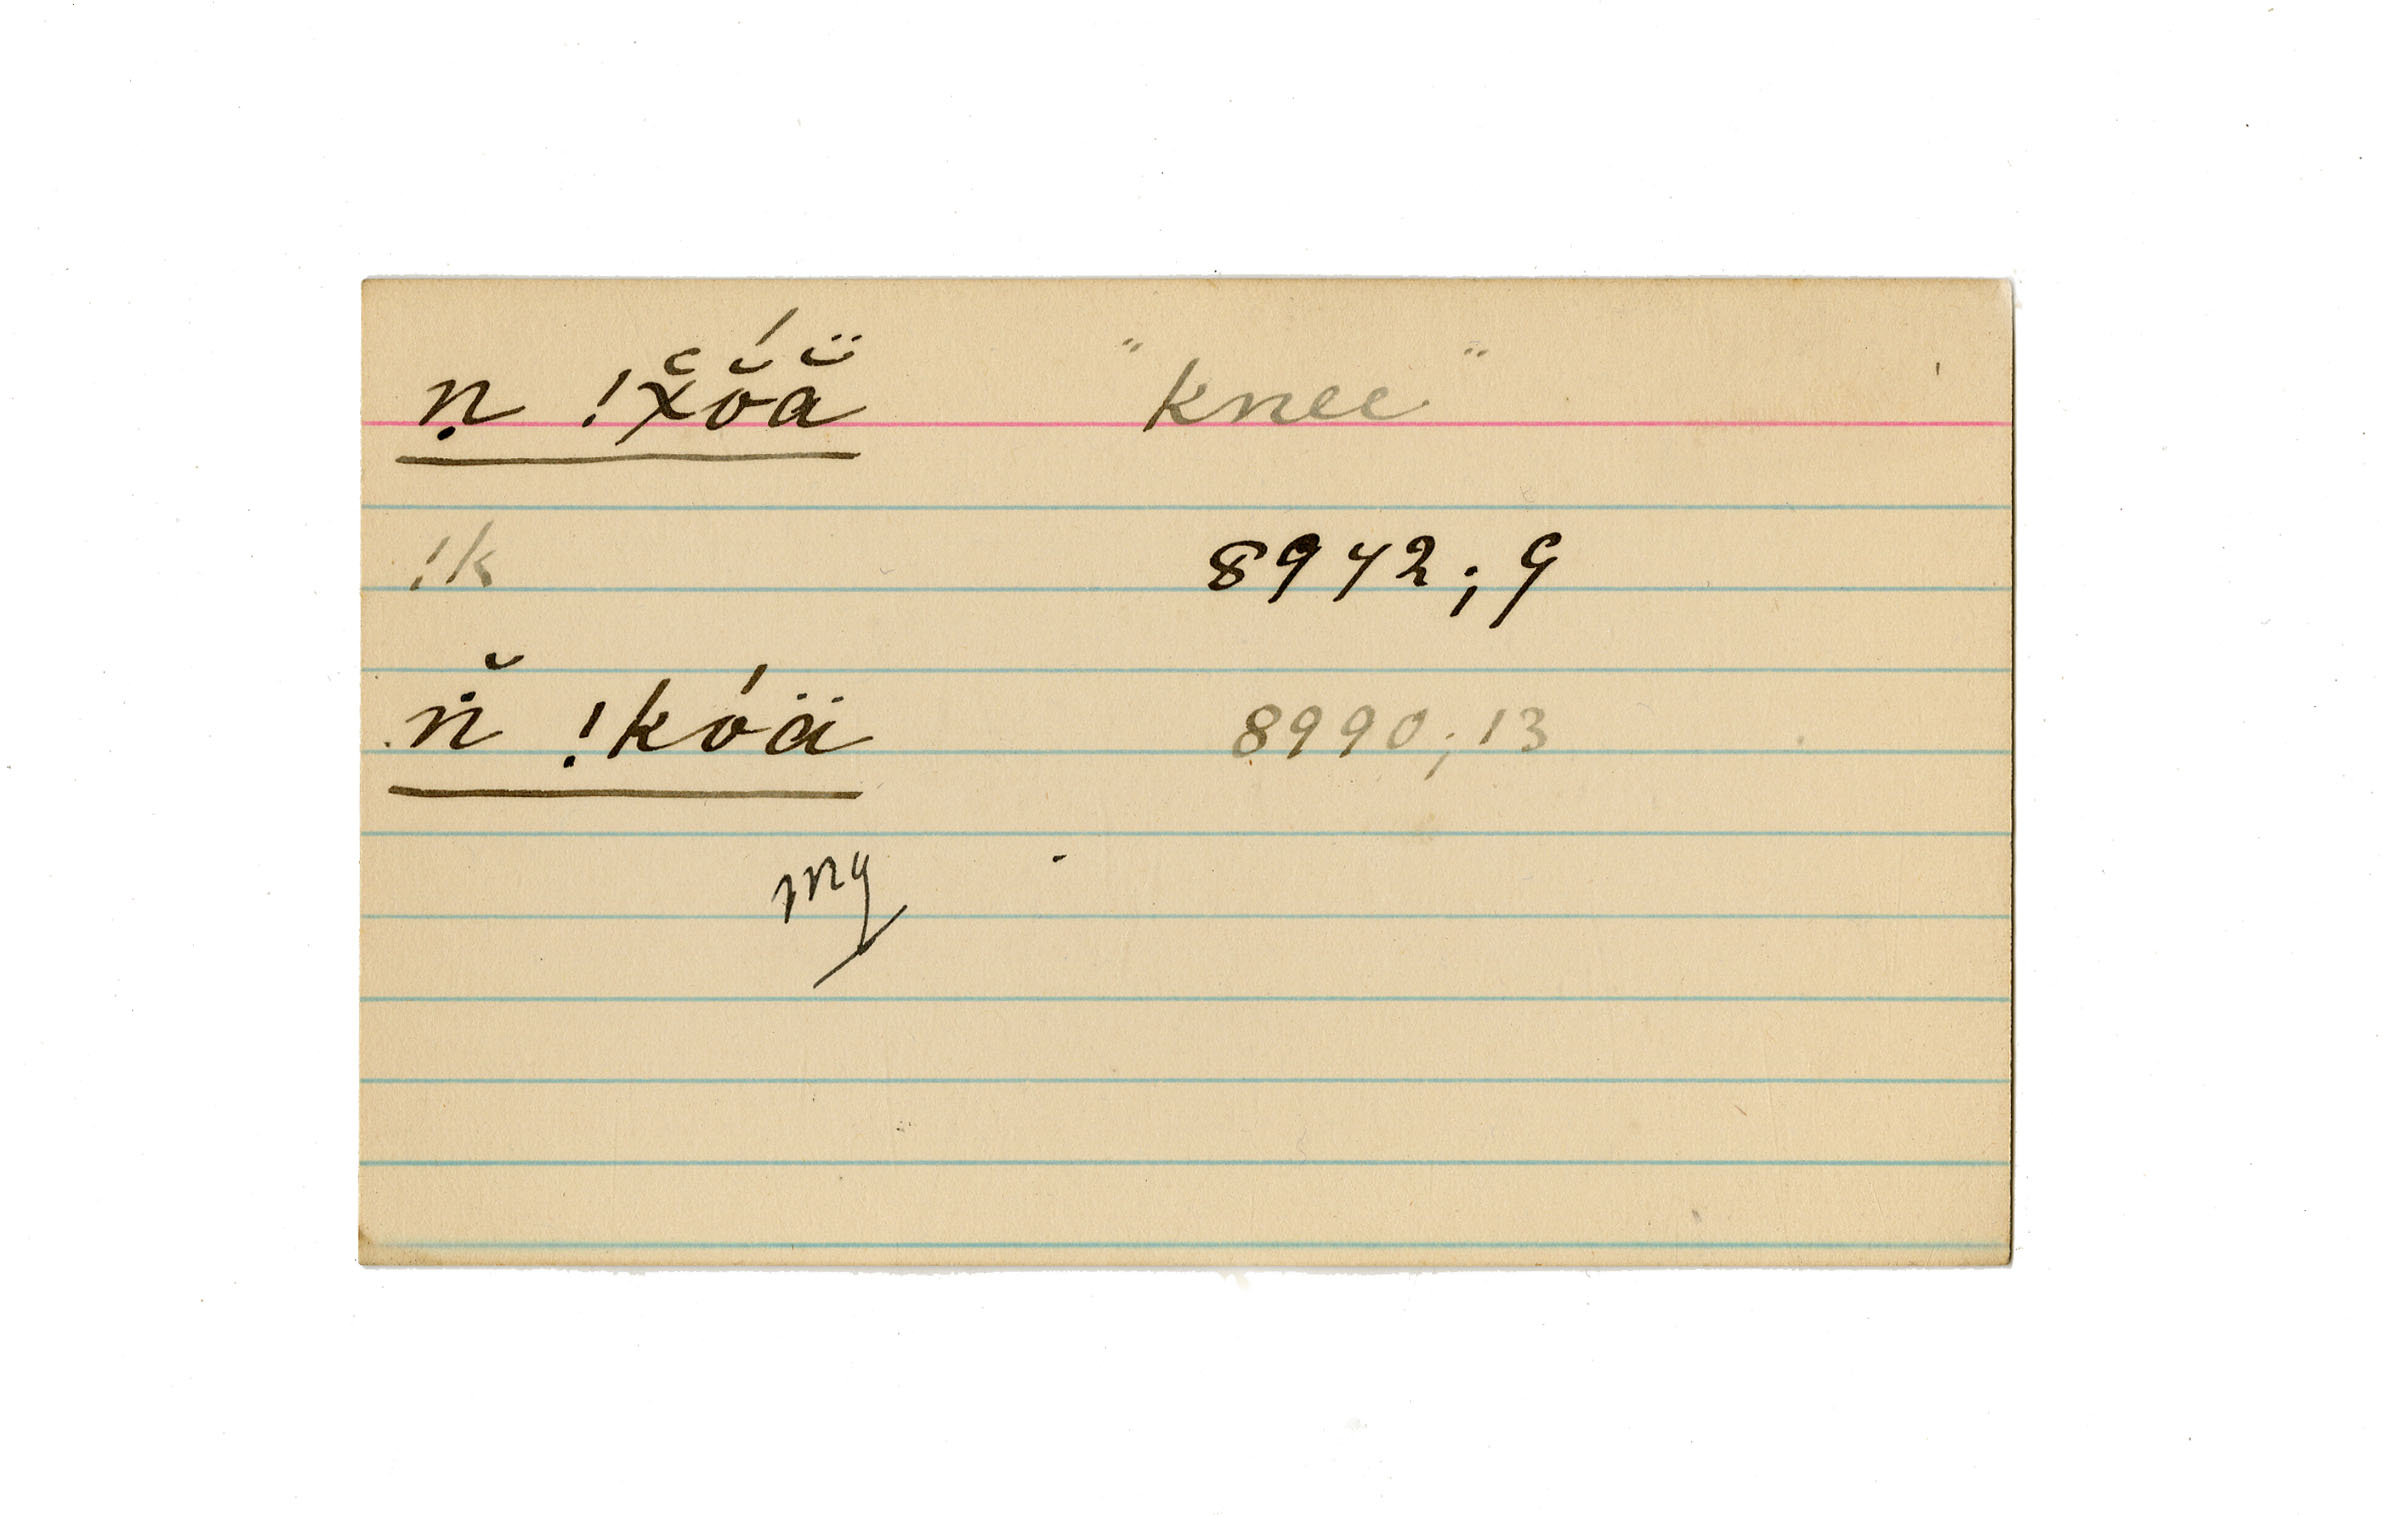 ṇ !χ̆ŏ́ä̆ "knee"
!k 8942; 9
n̈̆ !kóä 8990; 13
my